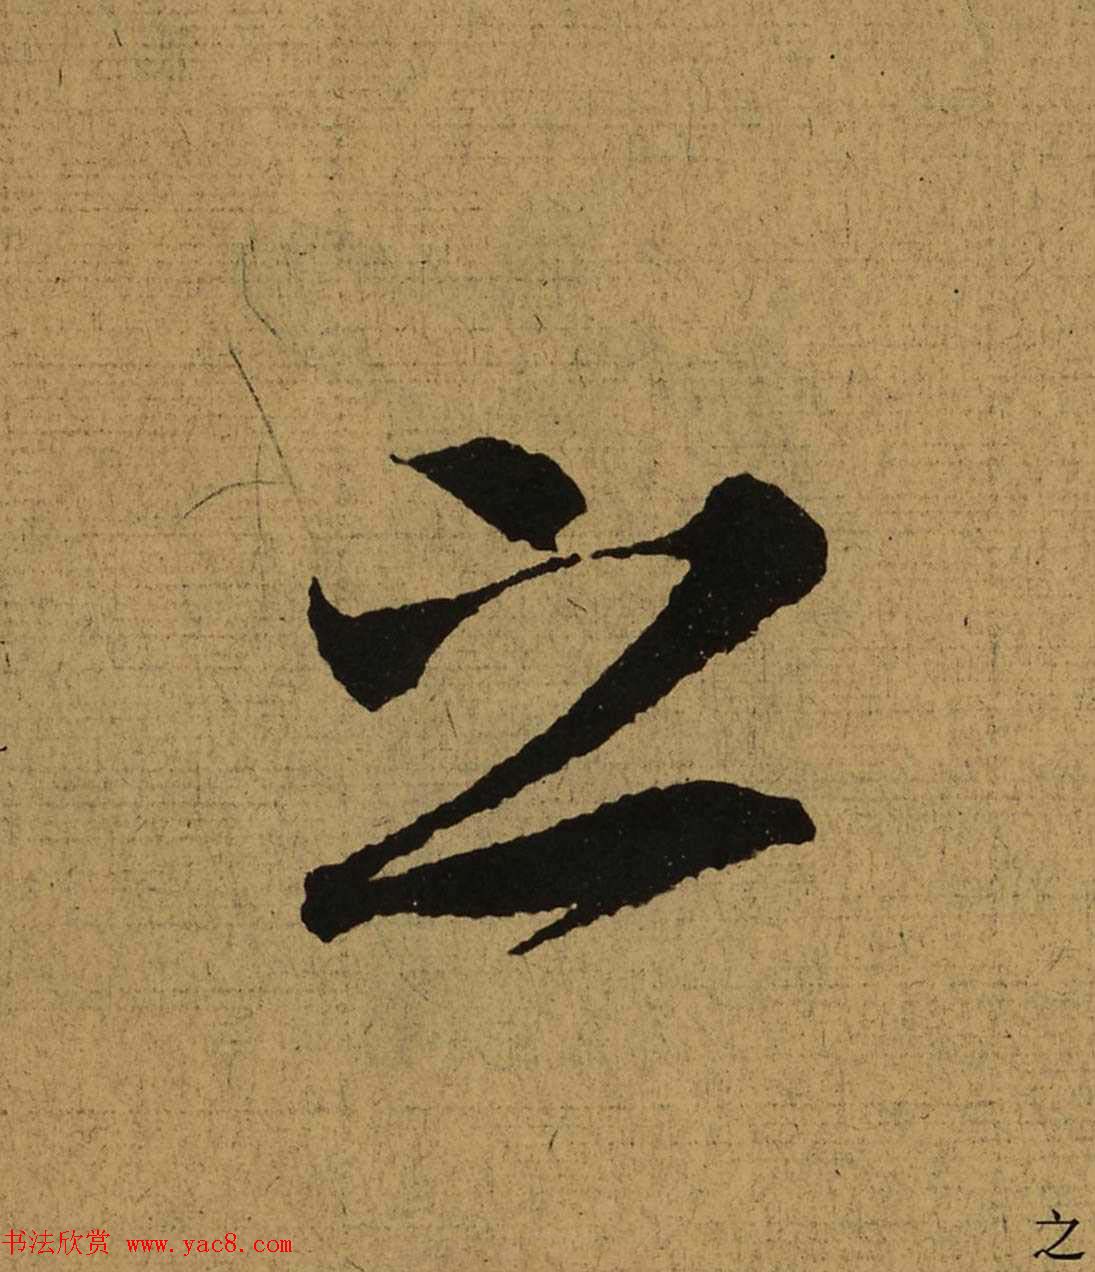 之
之
书法欣赏 www.yac8.com